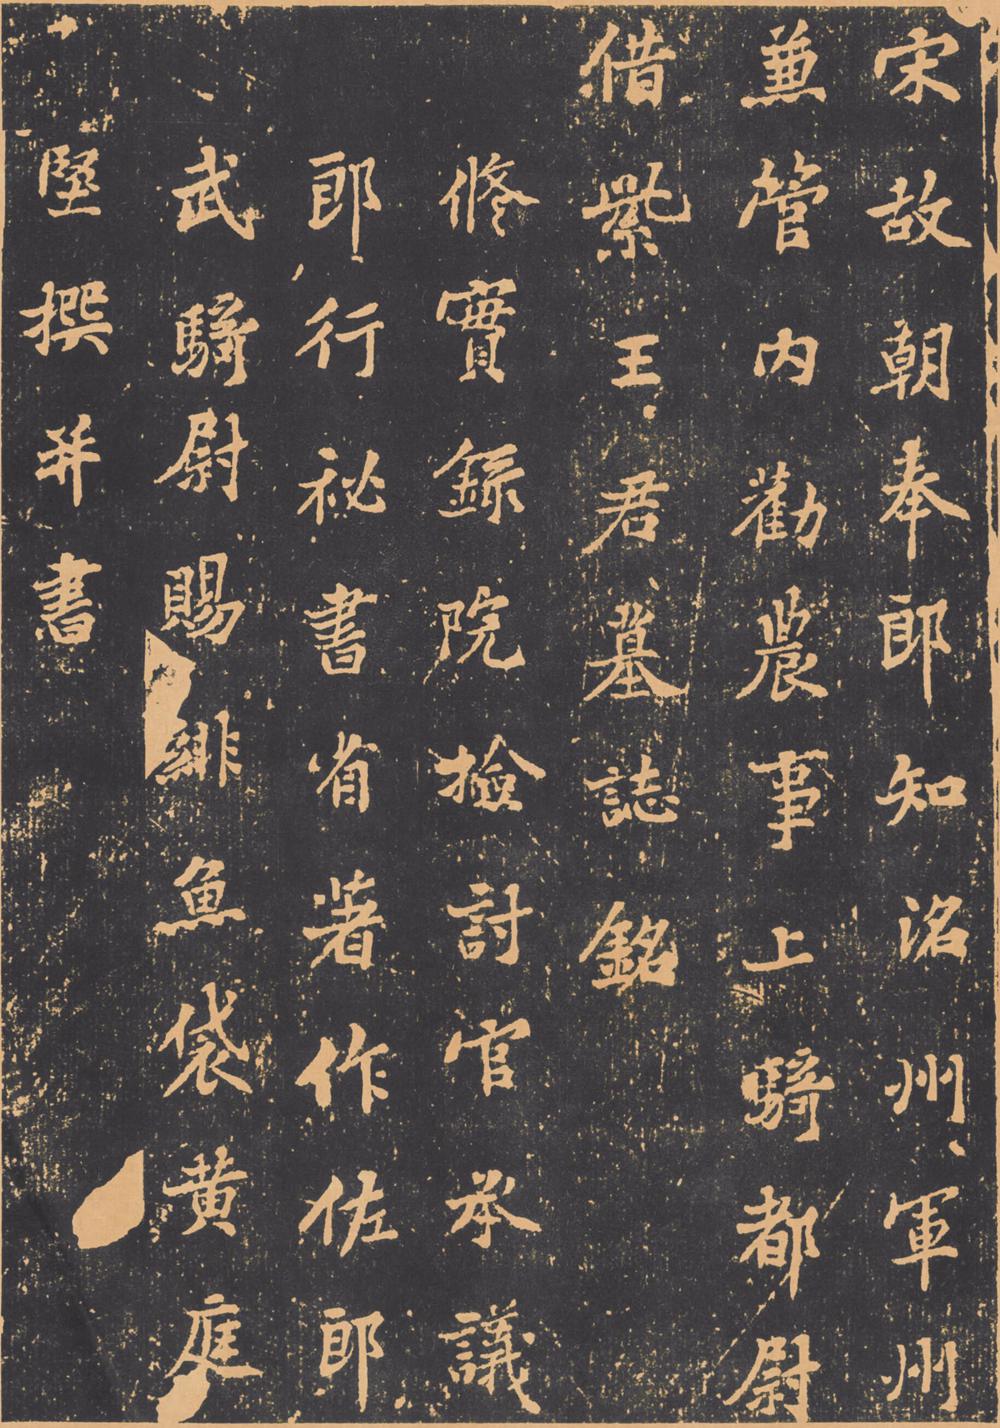 宋故朝奉郎知洺州軍州
兼管内勸農事上騎都尉
借紫王君墓誌銘
脩實錄院撿討官承議
郎行祕書省著作佐郎
武騎尉賜緋魚袋黄庭
堅撰并書